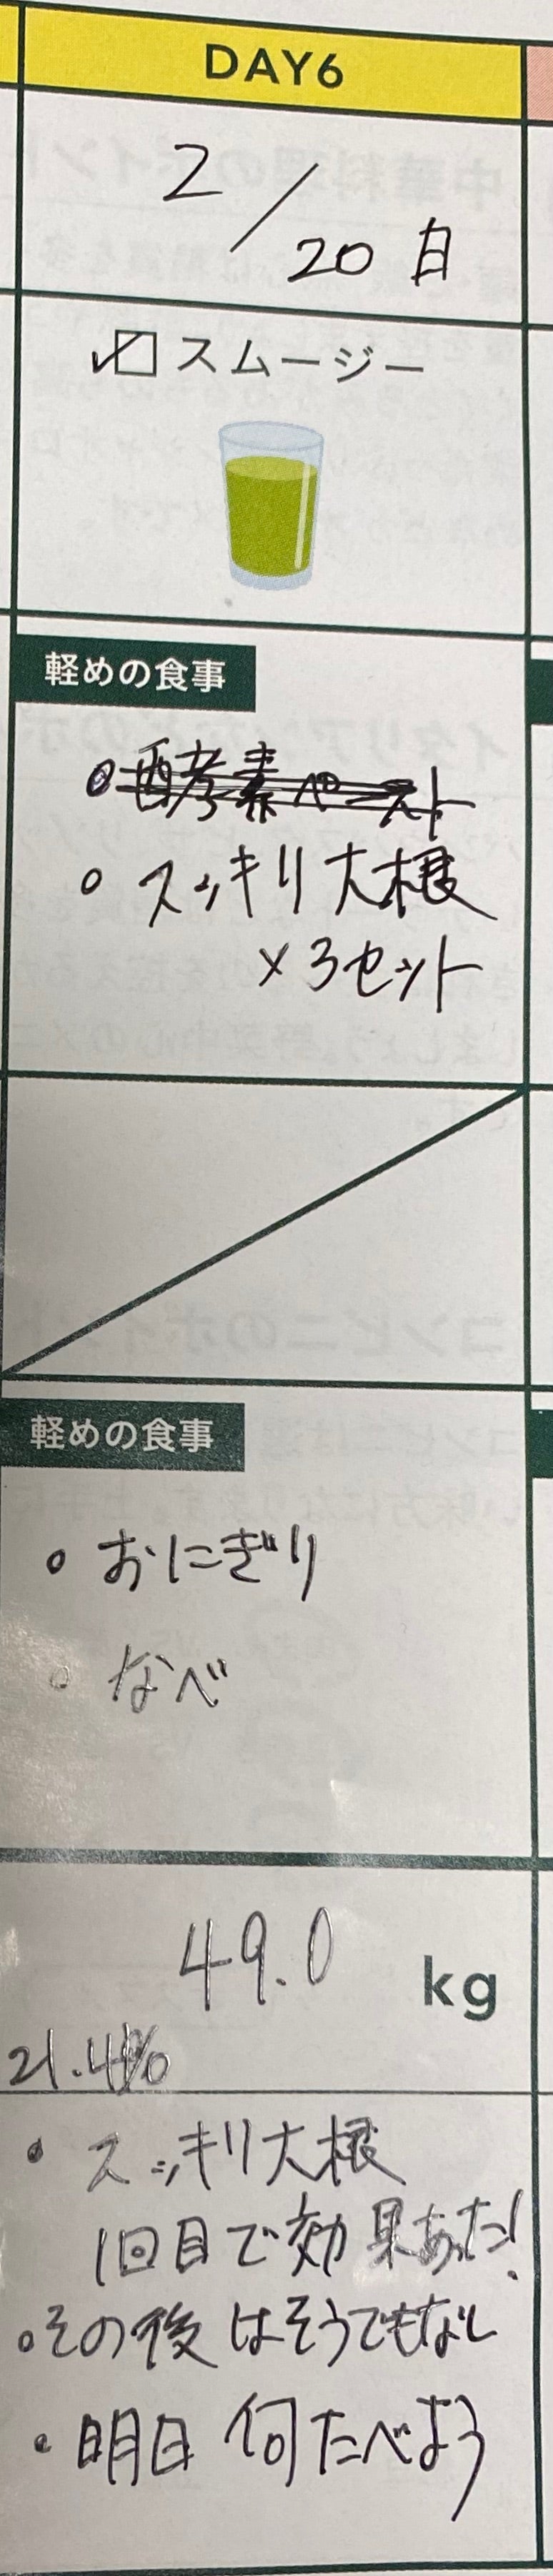 DAY6
2/20日
スムージー
軽めの食事
酵素ペースト
スッキリ大根
×3セット
軽めの食事
おにぎり
なべ
49.0 kg
21.4%
スッキリ大根
1回目で効果あった!
その後はそうでもなし
明日何たべよう